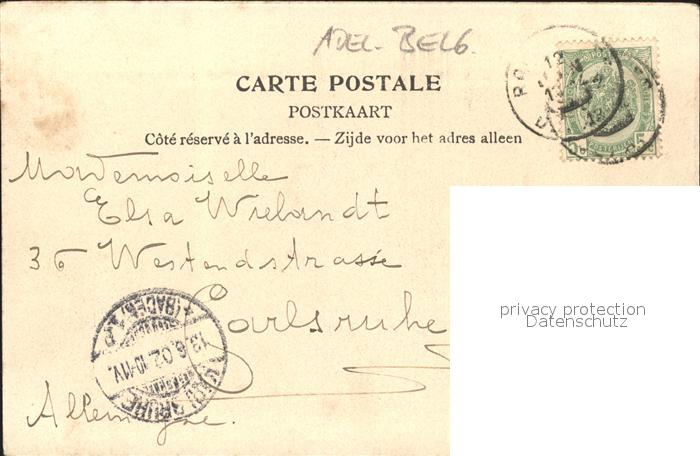 ADEL-BELG.
CARTE POSTALE
POSTKAART
Côté réservé à l'adresse. — Zijde voor het adres alleen
Mademoiselle
Elsa Wielandt
36 Westendstrasse
Carlsruhe
Allemagne.
(BADEN)
13.6.02.10-11V.
5
privacy protection
Datenschutz